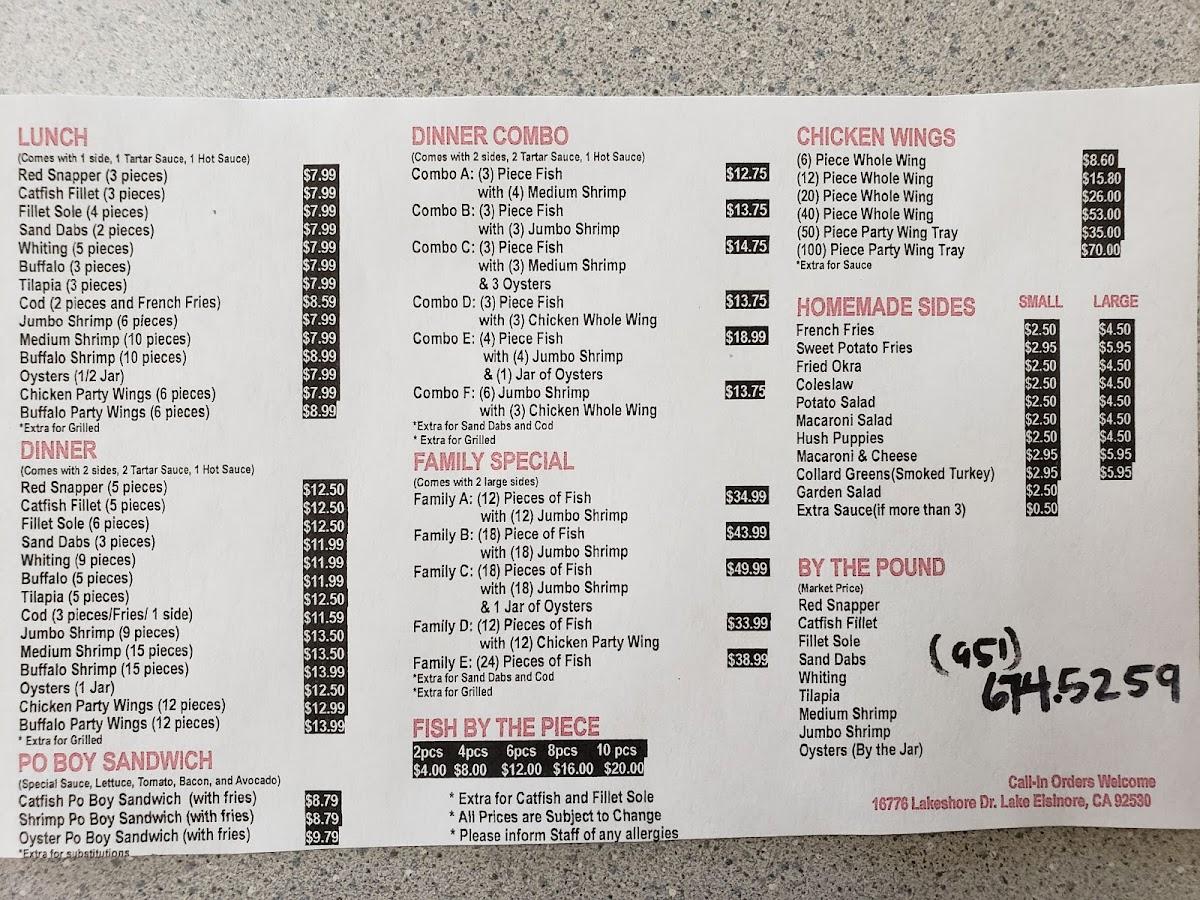 LUNCH
(Comes with 1 side, 1 Tartar Sauce, 1 Hot Sauce)
Red Snapper (3 pieces) $7.99
Catfish Fillet (3 pieces) $7.99
Fillet Sole (4 pieces) $7.99
Sand Dabs (2 pieces) $7.99
Whiting (5 pieces) $7.99
Buffalo (3 pieces) $7.99
Tilapia (3 pieces) $7.99
Cod (2 pieces and French Fries) $8.59
Jumbo Shrimp (6 pieces) $7.99
Medium Shrimp (10 pieces) $7.99
Buffalo Shrimp (10 pieces) $8.99
Oysters (1/2 Jar) $7.99
Chicken Party Wings (6 pieces) $7.99
Buffalo Party Wings (6 pieces) $8.99
*Extra for Grilled
DINNER
(Comes with 2 sides, 2 Tartar Sauce, 1 Hot Sauce)
Red Snapper (5 pieces) $12.50
Catfish Fillet (5 pieces) $12.50
Fillet Sole (6 pieces) $12.50
Sand Dabs (3 pieces) $11.99
Whiting (9 pieces) $11.99
Buffalo (5 pieces) $11.99
Tilapia (5 pieces) $12.50
Cod (3 pieces/Fries/ 1 side) $11.59
Jumbo Shrimp (9 pieces) $13.50
Medium Shrimp (15 pieces) $13.50
Buffalo Shrimp (15 pieces) $13.99
Oysters (1 Jar) $12.50
Chicken Party Wings (12 pieces) $12.99
Buffalo Party Wings (12 pieces) $13.99
* Extra for Grilled
PO BOY SANDWICH
(Special Sauce, Lettuce, Tomato, Bacon, and Avocado)
Catfish Po Boy Sandwich (with fries) $8.79
Shrimp Po Boy Sandwich (with fries) $8.79
Oyster Po Boy Sandwich (with fries) $9.79
*Extra for substitutions
DINNER COMBO
(Comes with 2 sides, 2 Tartar Sauce, 1 Hot Sauce)
Combo A: (3) Piece Fish $12.75
with (4) Medium Shrimp
Combo B: (3) Piece Fish $13.75
with (3) Jumbo Shrimp
Combo C: (3) Piece Fish $14.75
with (3) Medium Shrimp
& 3 Oysters
Combo D: (3) Piece Fish $13.75
with (3) Chicken Whole Wing
Combo E: (4) Piece Fish $18.99
with (4) Jumbo Shrimp
& (1) Jar of Oysters
Combo F: (6) Jumbo Shrimp $13.75
with (3) Chicken Whole Wing
*Extra for Sand Dabs and Cod
* Extra for Grilled
FAMILY SPECIAL
(Comes with 2 large sides)
Family A: (12) Pieces of Fish $34.99
with (12) Jumbo Shrimp
Family B: (18) Piece of Fish $43.99
with (18) Jumbo Shrimp
Family C: (18) Pieces of Fish $49.99
with (18) Jumbo Shrimp
& 1 Jar of Oysters
Family D: (12) Pieces of Fish $33.99
with (12) Chicken Party Wing
Family E: (24) Pieces of Fish $38.99
*Extra for Sand Dabs and Cod
*Extra for Grilled
FISH BY THE PIECE
2pcs 4pcs 6pcs 8pcs 10 pcs
$4.00 $8.00 $12.00 $16.00 $20.00
* Extra for Catfish and Fillet Sole
* All Prices are Subject to Change
* Please inform Staff of any allergies
CHICKEN WINGS
(6) Piece Whole Wing $8.60
(12) Piece Whole Wing $15.80
(20) Piece Whole Wing $26.00
(40) Piece Whole Wing $53.00
(50) Piece Party Wing Tray $35.00
(100) Piece Party Wing Tray $70.00
*Extra for Sauce
HOMEMADE SIDES SMALL LARGE
French Fries $2.50 $4.50
Sweet Potato Fries $2.95 $5.95
Fried Okra $2.50 $4.50
Coleslaw $2.50 $4.50
Potato Salad $2.50 $4.50
Macaroni Salad $2.50 $4.50
Hush Puppies $2.50 $4.50
Macaroni & Cheese $2.95 $5.95
Collard Greens(Smoked Turkey) $2.95 $5.95
Garden Salad $2.50
Extra Sauce(if more than 3) $0.50
BY THE POUND
(Market Price)
Red Snapper
Catfish Fillet
Fillet Sole
Sand Dabs
Whiting
Tilapia
Medium Shrimp
Jumbo Shrimp
Oysters (By the Jar)
(951)
674.5259
Call-In Orders Welcome
16776 Lakeshore Dr. Lake Elsinore, CA 92530